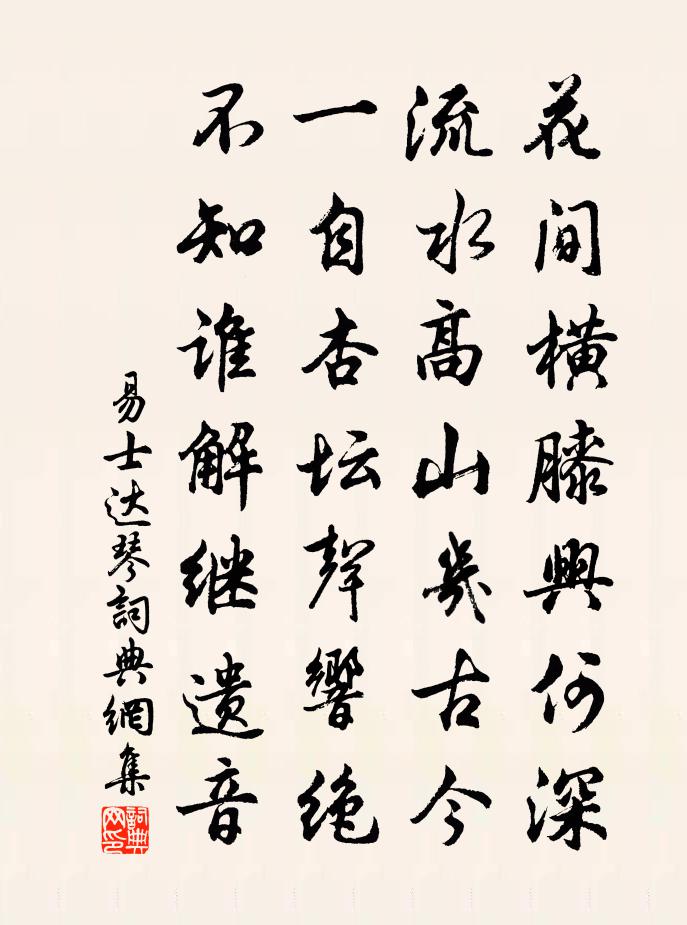 花间横膝興何深
流水高山幾古今
一自杏坛聲響绝
不知谁解继遗音
易士达琴詞典網集
詞典網印